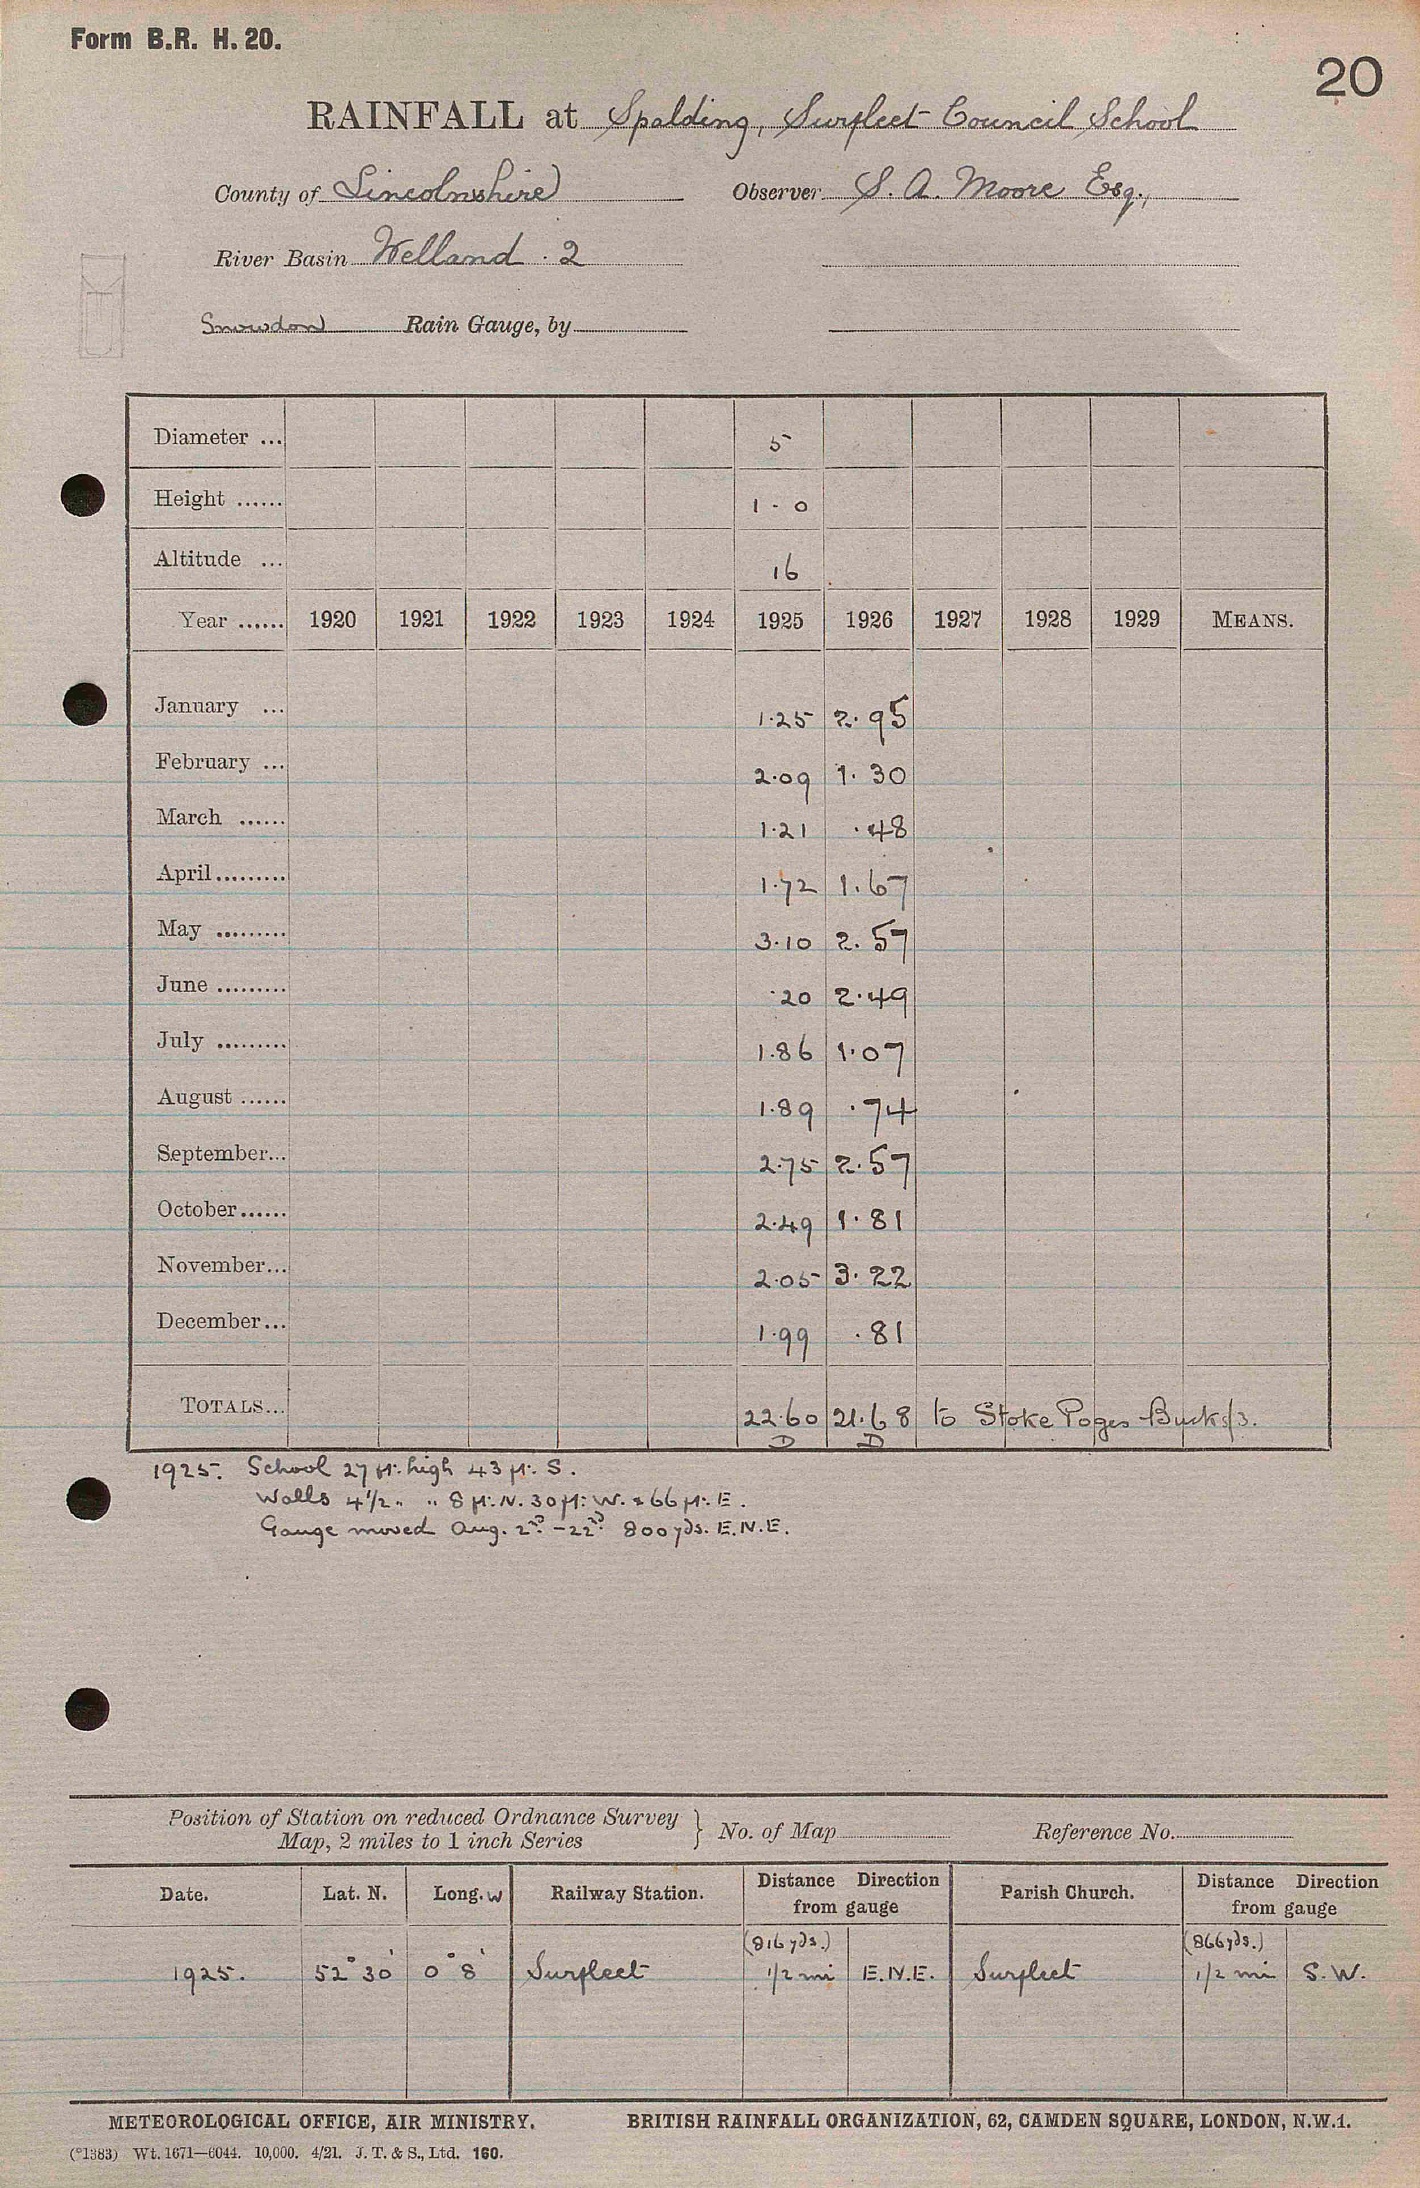 Form B.R. H. 20.
20
RAINFALL at Spalding, Surfleet Council School
County of Lincolnshire Observer S. A. Moore Esq.,
River Basin Welland . 2
Snowdon Rain Gauge, by
Diameter ... 5
Height ...... 1 - 0
Altitude ... 16
Year ...... 1920 1921 1922 1923 1924 1925 1926 1927 1928 1929 MEANS.
January ... 1.25 2.95
February ... 2.09 1.30
March ...... 1.21 .48
April......... 1.72 1.67
May ......... 3.10 2.57
June ......... .20 2.49
July ......... 1.86 1.07
August ...... 1.89 .74
September... 2.75 2.57
October...... 2.49 1.81
November... 2.05 3.22
December... 1.99 .81
TOTALS... 22.60 21.68 to Stoke Poges Bucks/3.
D D
1925. School 27 ft. high 43 ft. S.
Walls 4 1/2 " " 8 ft. N. 30 ft. W. & 66 ft. E.
Gauge moved Aug. 2nd - 22nd 800 yds. E.N.E.
Position of Station on reduced Ordnance Survey
Map, 2 miles to 1 inch Series } No. of Map Reference No.
Date. Lat. N. Long. W Railway Station. Distance Direction from gauge Parish Church. Distance Direction from gauge
(816 yds.) (866 yds.)
1925. 52° 30' 0° 8' Surfleet 1/2 mi E.N.E. Surfleet 1/2 mi S.W.
METEOROLOGICAL OFFICE, AIR MINISTRY. BRITISH RAINFALL ORGANIZATION, 62, CAMDEN SQUARE, LONDON, N.W.1.
(*1383) Wt. 1671—6044. 10,000. 4/21. J. T. & S., Ltd. 160.